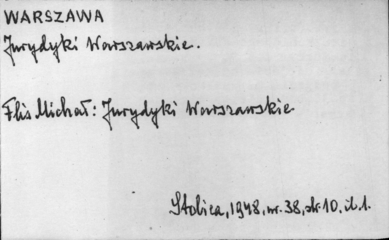 WARSZAWA
Jurydyki Warszawskie.
Flis Michał: Jurydyki Warszawskie
Stolica, 1948, nr. 38, str. 10, il. 1.